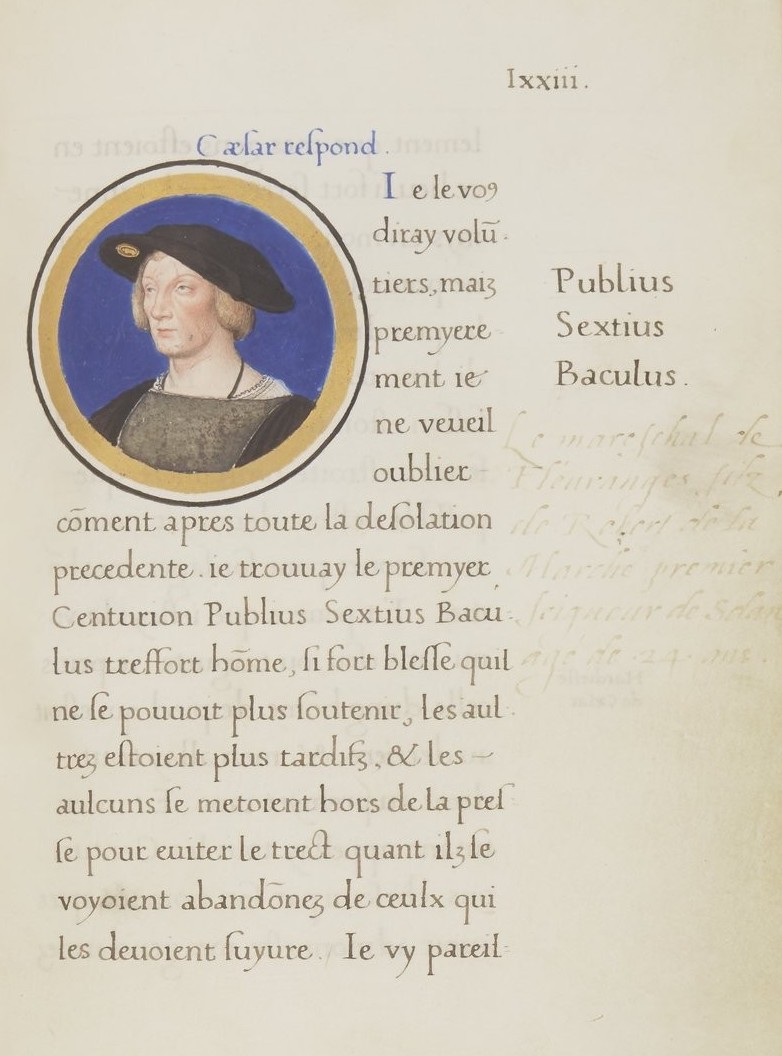 lxxiii.
Cæſar reſpond.
Ie le voꝰ
diray volū-
tiers, maiȝ
premyere
ment ie
ne veueil
oublier
cōment apres toute la deſolation
precedente. ie trouuay le premyer
Centurion Publius Sextius Bacu-
lus treffort hōme, ſi fort bleſſe quil
ne ſe pouuoit plus ſoutenir, les aul-
treȝ eſtoient plus tardifȝ, & les –
aulcuns ſe metoient hors de la preſ
ſe pour euiter le trect quant ilȝ ſe
voyoient abandōneȝ de ceulx qui
les deuoient ſuyure. Ie vy pareil-
Publius
Sextius
Baculus.
Le mareſchal de
Fleuranges filz
de Robert de la
Marche premier
ſeigneur de Sedan
agé de 24 ans.